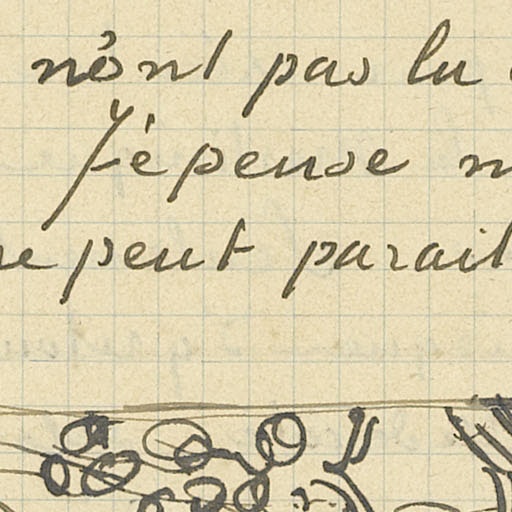 n'ônt pas lu
Jé pense
ne peut parait